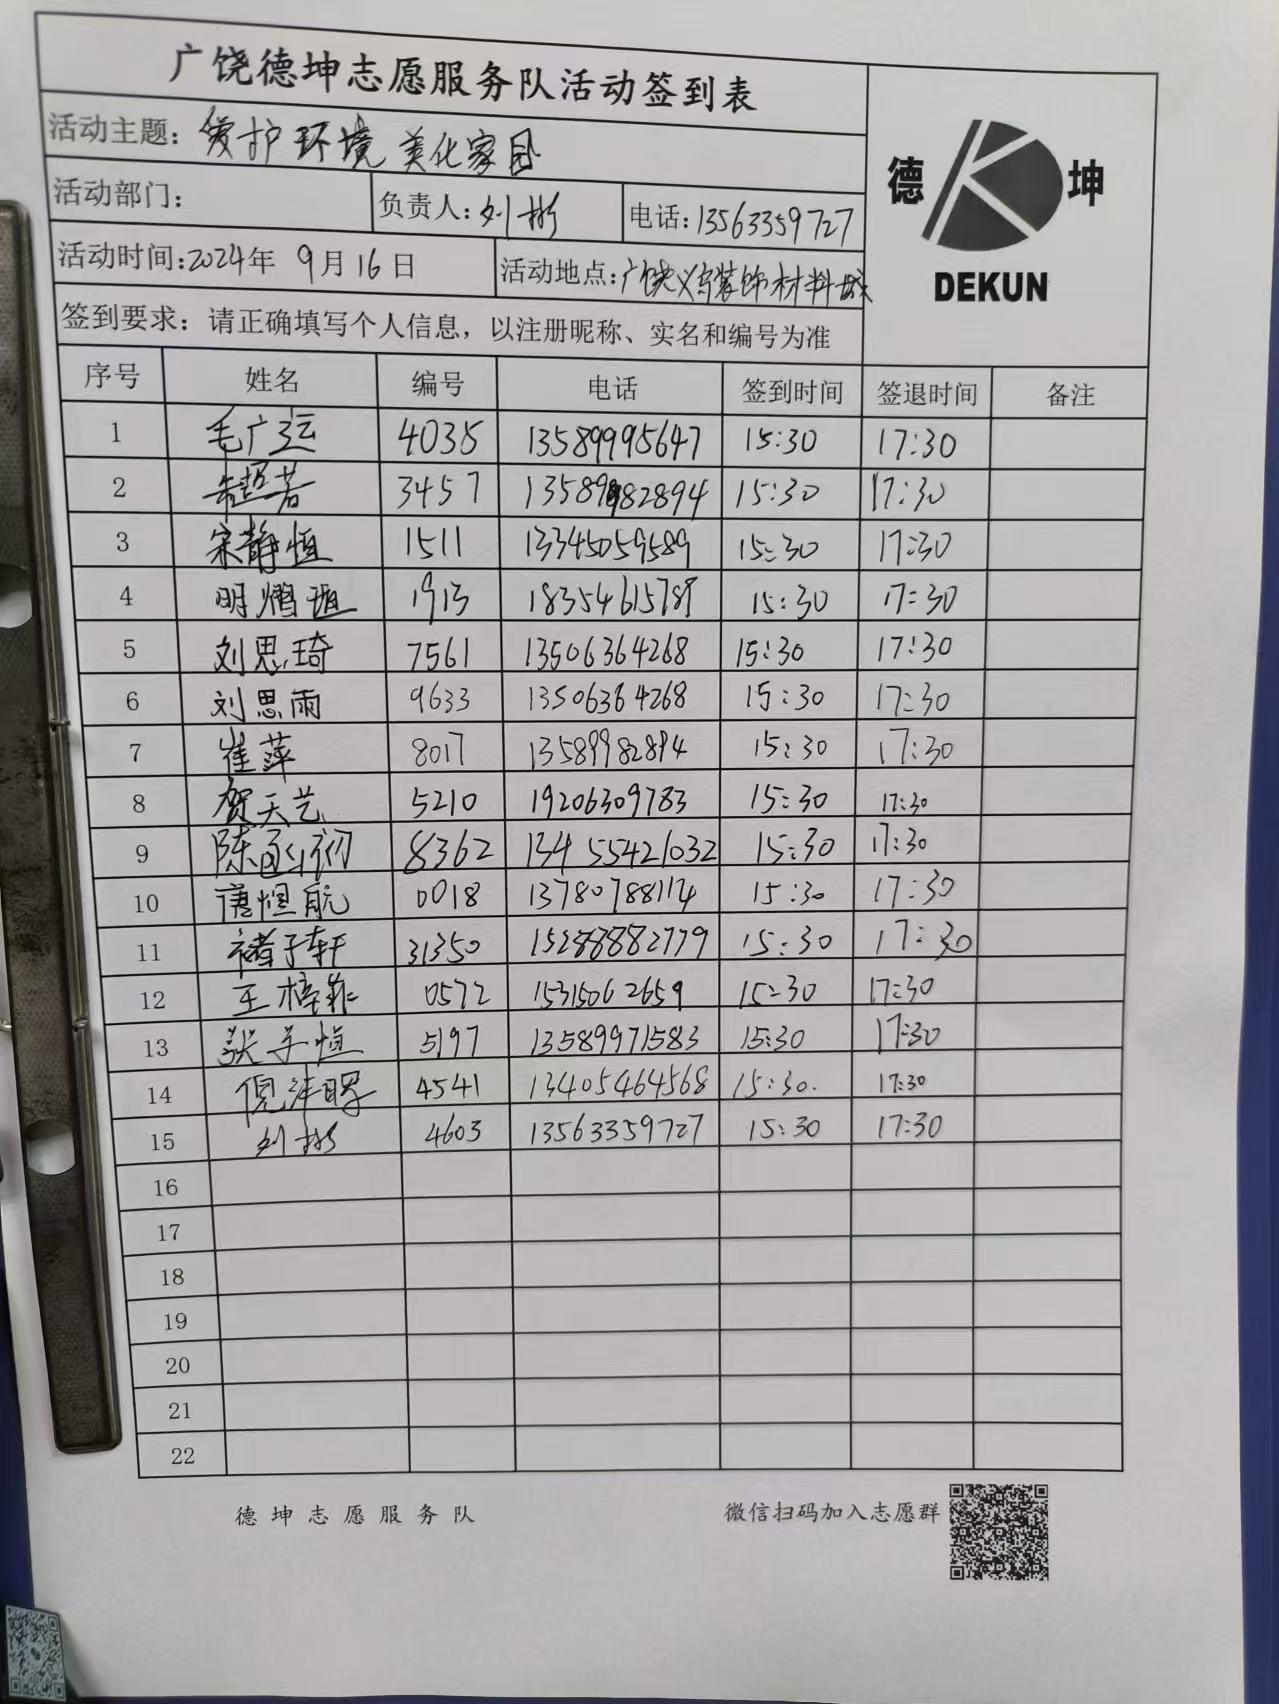 广饶德坤志愿服务队活动签到表
活动主题：爱护环境 美化家园
德 坤
DEKUN
活动部门： 负责人：刘彬 电话：13563359727
活动时间：2024年 9月16日 活动地点：广饶义乌装饰材料城
签到要求：请正确填写个人信息，以注册昵称、实名和编号为准
序号 姓名 编号 电话 签到时间 签退时间 备注
1 毛广运 4035 13589995647 15:30 17:30
2 3457 13589982894 15:30 17:30
3 宋静恒 1511 13345059589 15:30 17:30
4 明熠 1913 18354615789 15:30 17:30
5 刘思琦 7561 13506364268 15:30 17:30
6 刘思雨 9633 13506364268 15:30 17:30
7 崔萍 8017 13589982894 15:30 17:30
8 贺天艺 5210 19206309783 15:30 17:30
9 陈 初 8362 13455421032 15:30 17:30
10 唐煜航 0018 13780788114 15:30 17:30
11 褚子轩 31350 15288882779 15:30 17:30
12 王梓菲 0572 15315062659 15:30 17:30
13 张予恒 5197 13589971583 15:30 17:30
14 倪沣 4541 13405464568 15:30. 17:30
15 刘彬 4603 13563359727 15:30 17:30
16
17
18
19
20
21
22
德坤志愿服务队 微信扫码加入志愿群